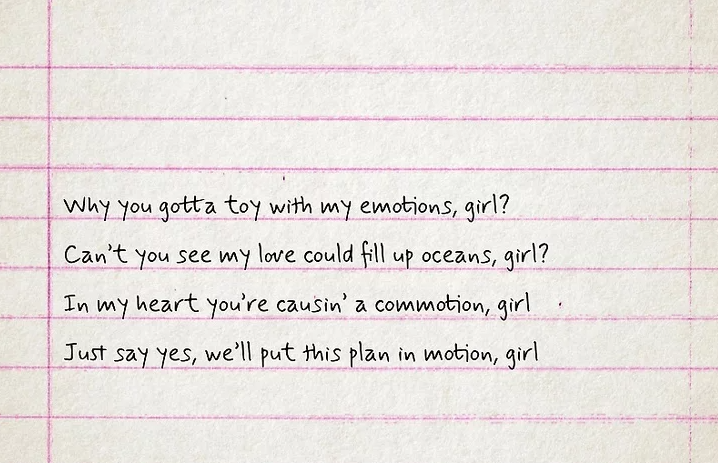 Why you gotta toy with my emotions, girl?
Can't you see my love could fill up oceans, girl?
In my heart you're causin' a commotion, girl
Just say yes, we'll put this plan in motion, girl